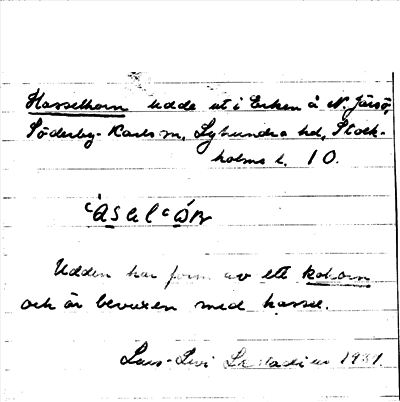 Hasselhorn udde ut i Erken å N. Järsö,
Söderby-Karls sn, Lyhundra hd, Stock-
holms l. 10.
Udden har form av ett kohorn
och är bevuxen med hassel.
Lars-Levi Læstadius 1931.